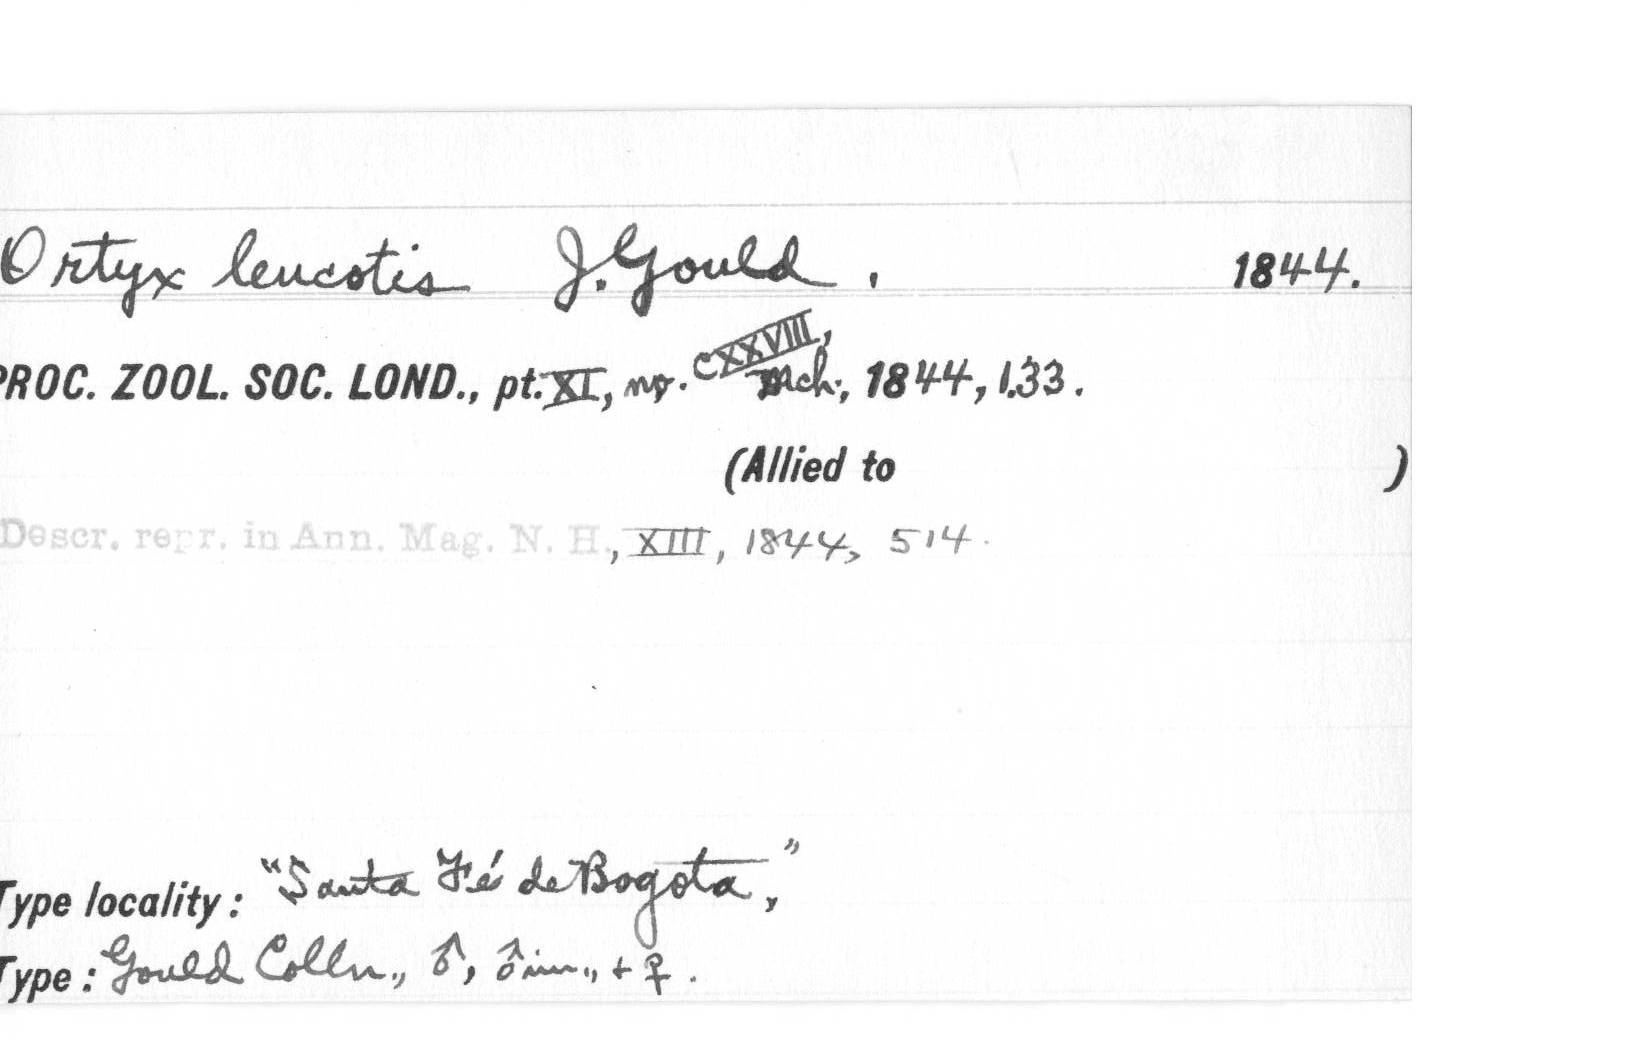 Ortyx leucotis J. Gould. 1844.
PROC. ZOOL. SOC. LOND., pt. XI, no. CXXVIII, Mch., 1844, 133.
(Allied to )
Descr. repr. in Ann. Mag. N. H., XIII, 1844, 514.
Type locality: "Santa Fé de Bogota,"
Type: Gould Colln., ♂, ♂ im., + ♀.